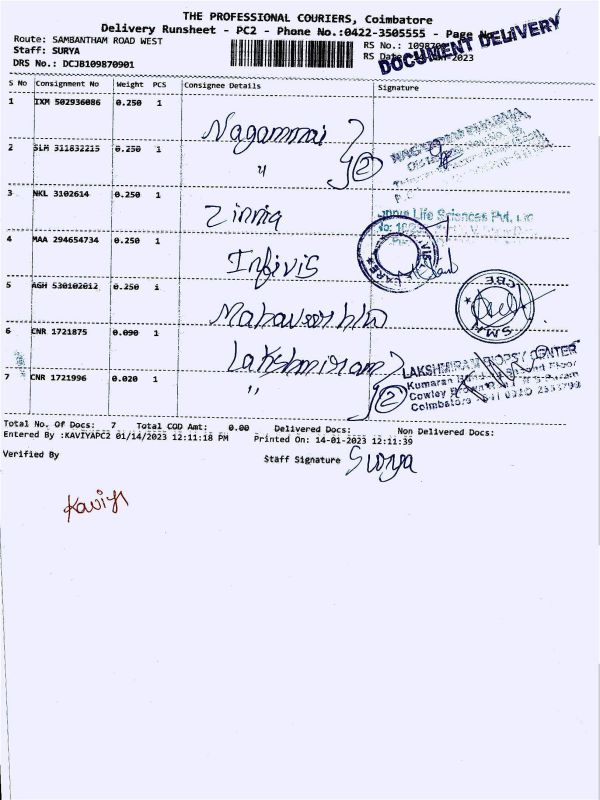 THE PROFESSIONAL COURIERS, Coimbatore
Delivery Runsheet - PC2 - Phone No.:0422-3505555 - Page
DOCUMENT DELIVERY
Route: SAMBANTHAM ROAD WEST
RS No.:
Staff: SURYA
RS
2023
DRS No.: DCJB109870901
S No Consignment No Weight PCS Consignee Details Signature
1 IXM 502936086 0.250 1 Nagammai
2 SLM 311832215 0.250 1 " 2
3 NKL 3102614 0.250 1 Zinnia
Life Sciences Pvt.
4 MAA 294654734 0.250 1 Infivis
5 AGH 530102012 0.250 1
CBE
SMN
6 CNR 1721875 0.090 1 Lakshmiram
LAKSHMIRAM BIOPSY CENTER
Kumaran
Floor
7 CNR 1721996 0.020 1 " 2
Cowley Brown
Coimbatore
Total No. Of Docs: 7 Total COD Amt: 0.00 Delivered Docs: Non Delivered Docs:
Entered By :KAVIYAPC2 01/14/2023 12:11:18 PM Printed On: 14-01-2023 12:11:39
Verified By Staff Signature Surya
Kaviya